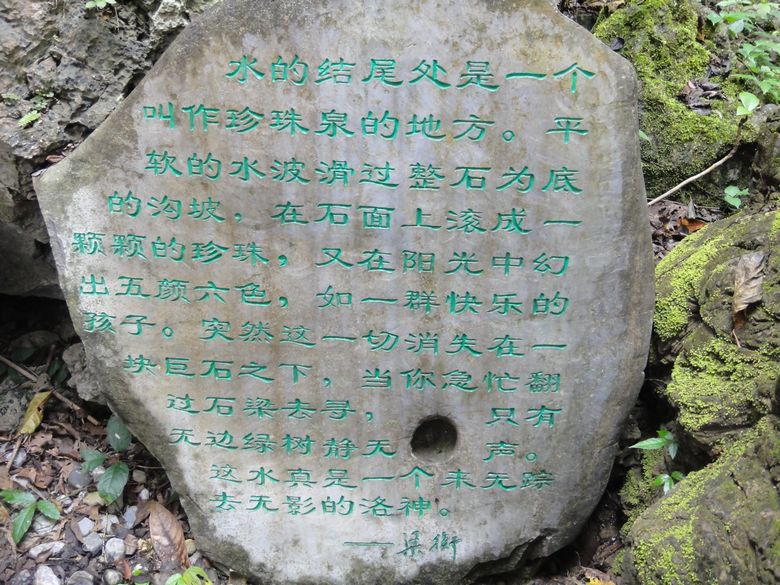 水的结尾处是一个
叫作珍珠泉的地方。平
软的水波滑过整石为底
的沟坡，在石面上滚成一
颗颗的珍珠，又在阳光中幻
出五颜六色，如一群快乐的
孩子。突然这一切消失在一
块巨石之下，当你急忙翻
过石梁去寻，只有
无边绿树静无声。
这水真是一个来无踪
去无影的洛神。
——梁衡